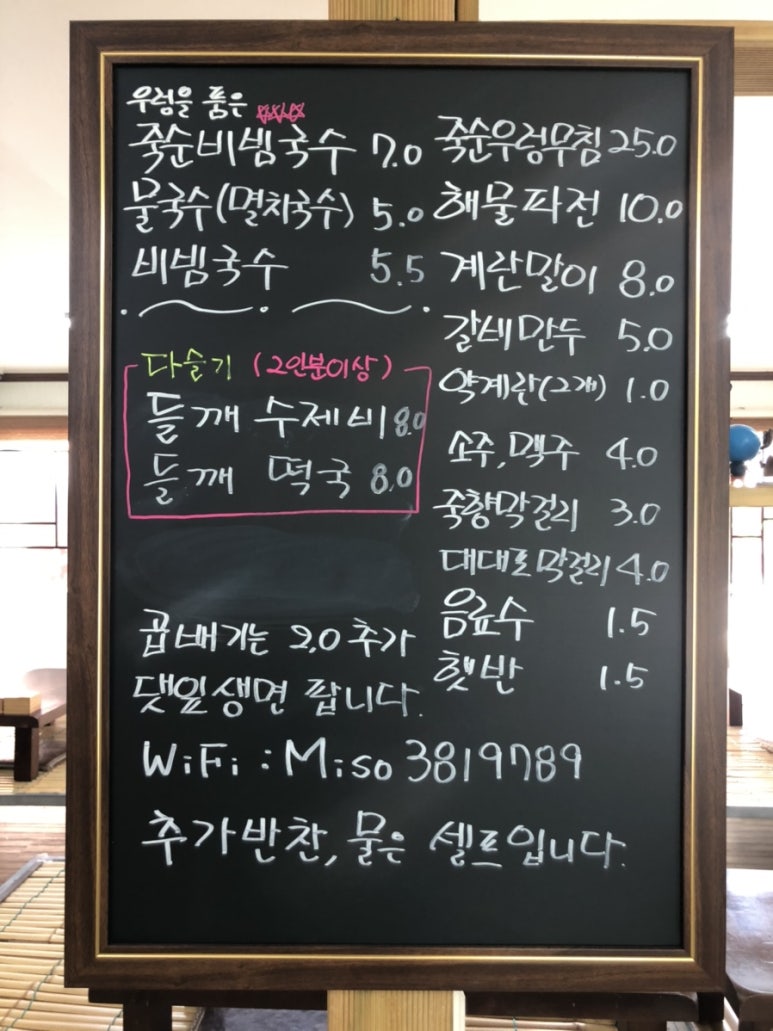 우렁을 품은
죽순비빔국수 7.0
물국수(멸치국수) 5.0
비빔국수 5.5
다슬기 (2인분이상)
들깨 수제비 8.0
들깨 떡국 8.0
곱배기는 2.0 추가
댓잎생면 팝니다.
죽순우렁무침 25.0
해물파전 10.0
계란말이 8.0
갈비만두 5.0
약계란(2개) 1.0
소주, 맥주 4.0
죽향막걸리 3.0
대대포막걸리 4.0
음료수 1.5
햇반 1.5
WiFi : Miso 3819789
추가반찬, 물은 셀프입니다.